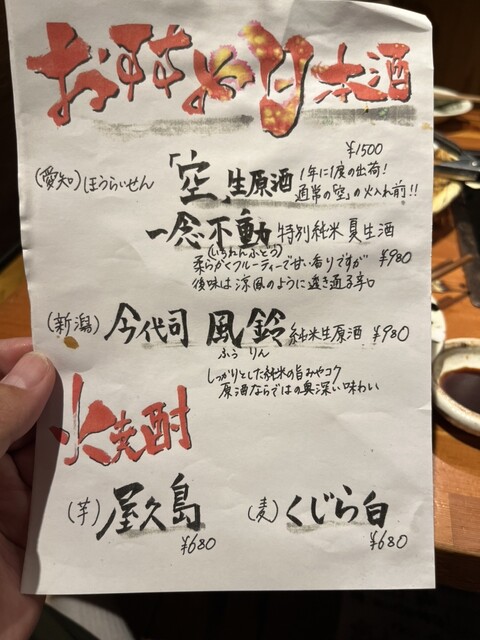 おすすめ日本酒
¥1500
(愛知)ほうらいせん 「空」生原酒 1年に1度の出荷!
通常の「空」の火入れ前!!
一念不動 特別純米 夏生酒
(いちねんふどう)
柔らかくフルーティーで甘い香りですが ¥980
後味は涼風のように透き通る辛口
(新潟) 今代司 風鈴 純米生原酒 ¥980
ふう りん
しっかりとした純米の旨みやコク
原酒ならではの奥深い味わい
焼酎
(芋) 屋久島 (麦) くじら白
¥680 ¥680